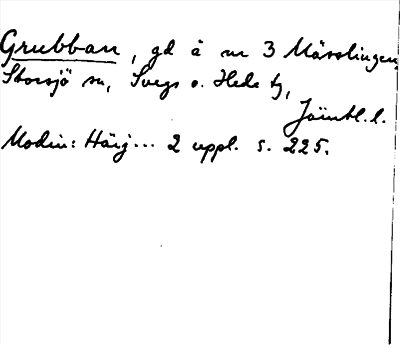 Grubban, gd å nr 3 Mässlingen,
Storsjö sn, Svegs o. Hede tg,
Jämtl. l.
Modin: Härj... 2 uppl. s. 225.